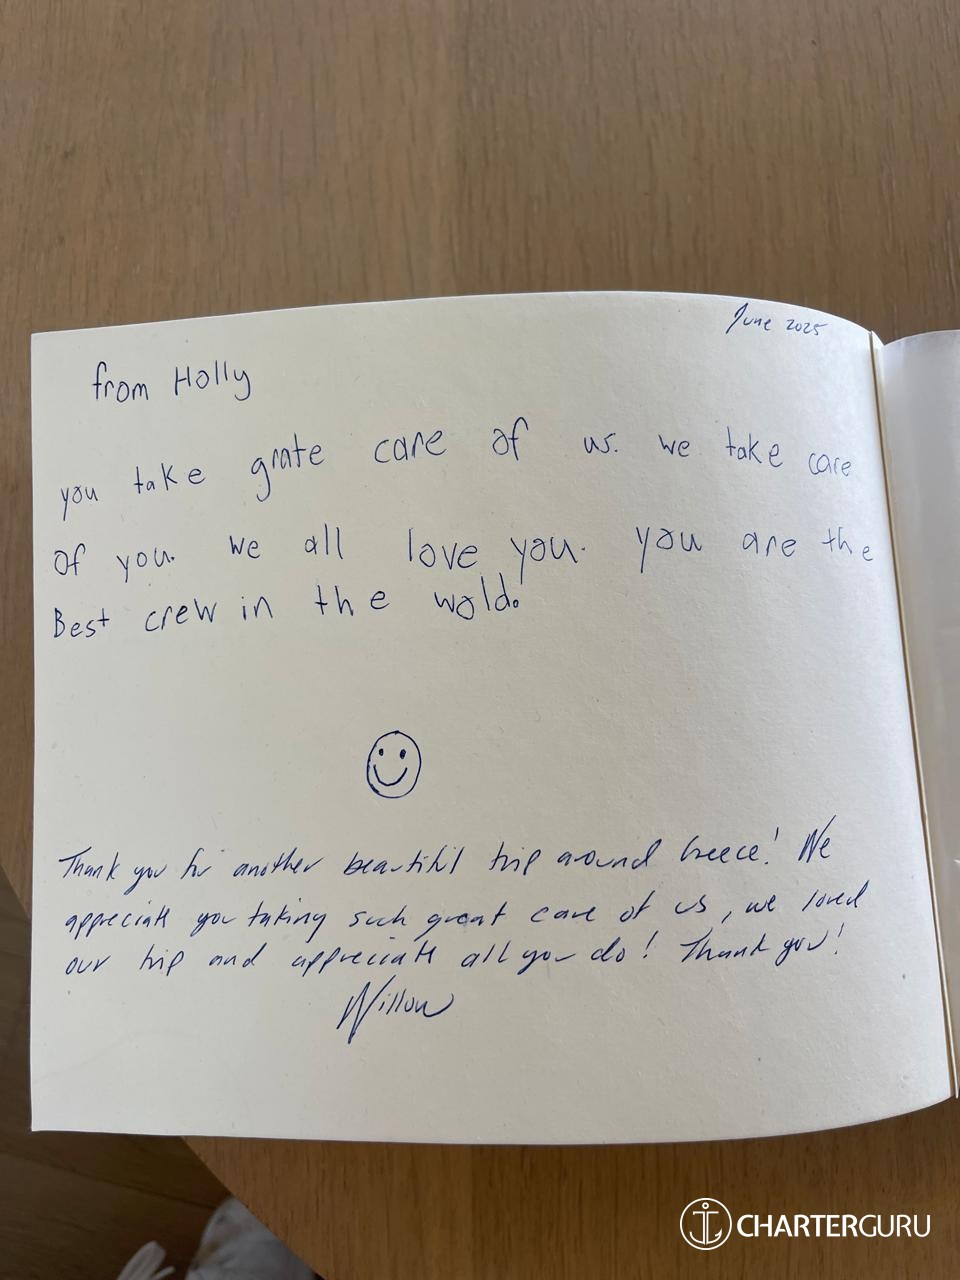 June 2025
from Holly
you take grate care of us. we take care
of you. we all love you. you are the
Best crew in the wold.
Thank you for another beautiful trip around Greece! We
appreciate you taking such great care of us, we loved
our trip and appreciate all you do! Thank you!
Willow
CHARTERGURU